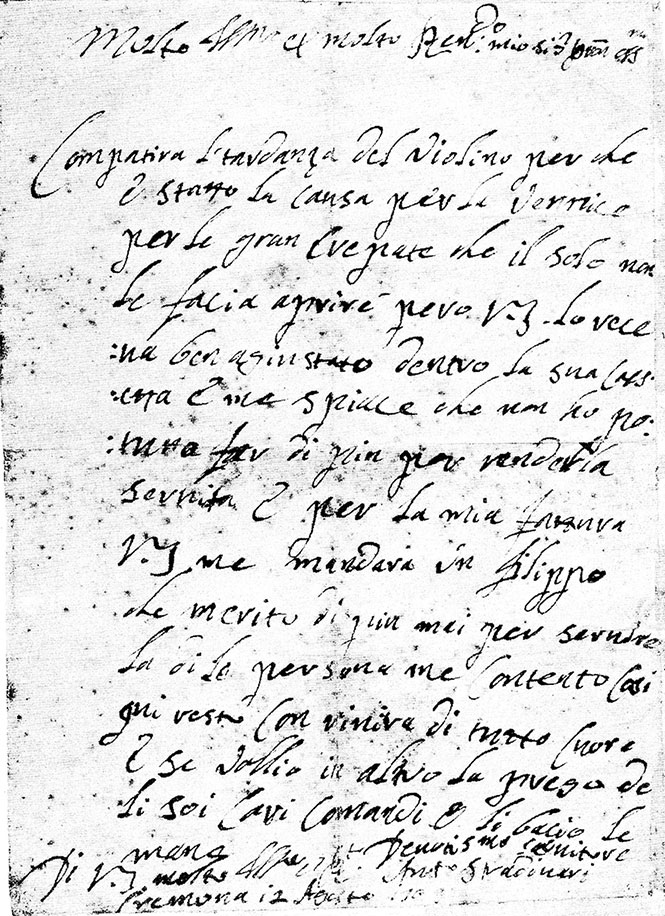 Molto Illmo et molto Rendo mio sigr
Compatira l'tardanza del violino per che
è statto la causa per la vernice
per le gran crepate che il sole non
le facia aprire però V.S. lo rece
:na ben aginstato dentro la sua cas:
:etta è me spiace che non ho po:
:tutta far di piu per renderla
servita è per la mia fattura
V.S. me mandarà un filippo
che merito di piu mai per servire
la di le persona me contento cosi
qui resto con vivira di tutto cuore
è se vollio in altro la prego de
li soi cari comandi & li bacio le
mane
Di V.S. molto Illre Devotismo servitore
Cremona 12 Agosto Anto Stradivari